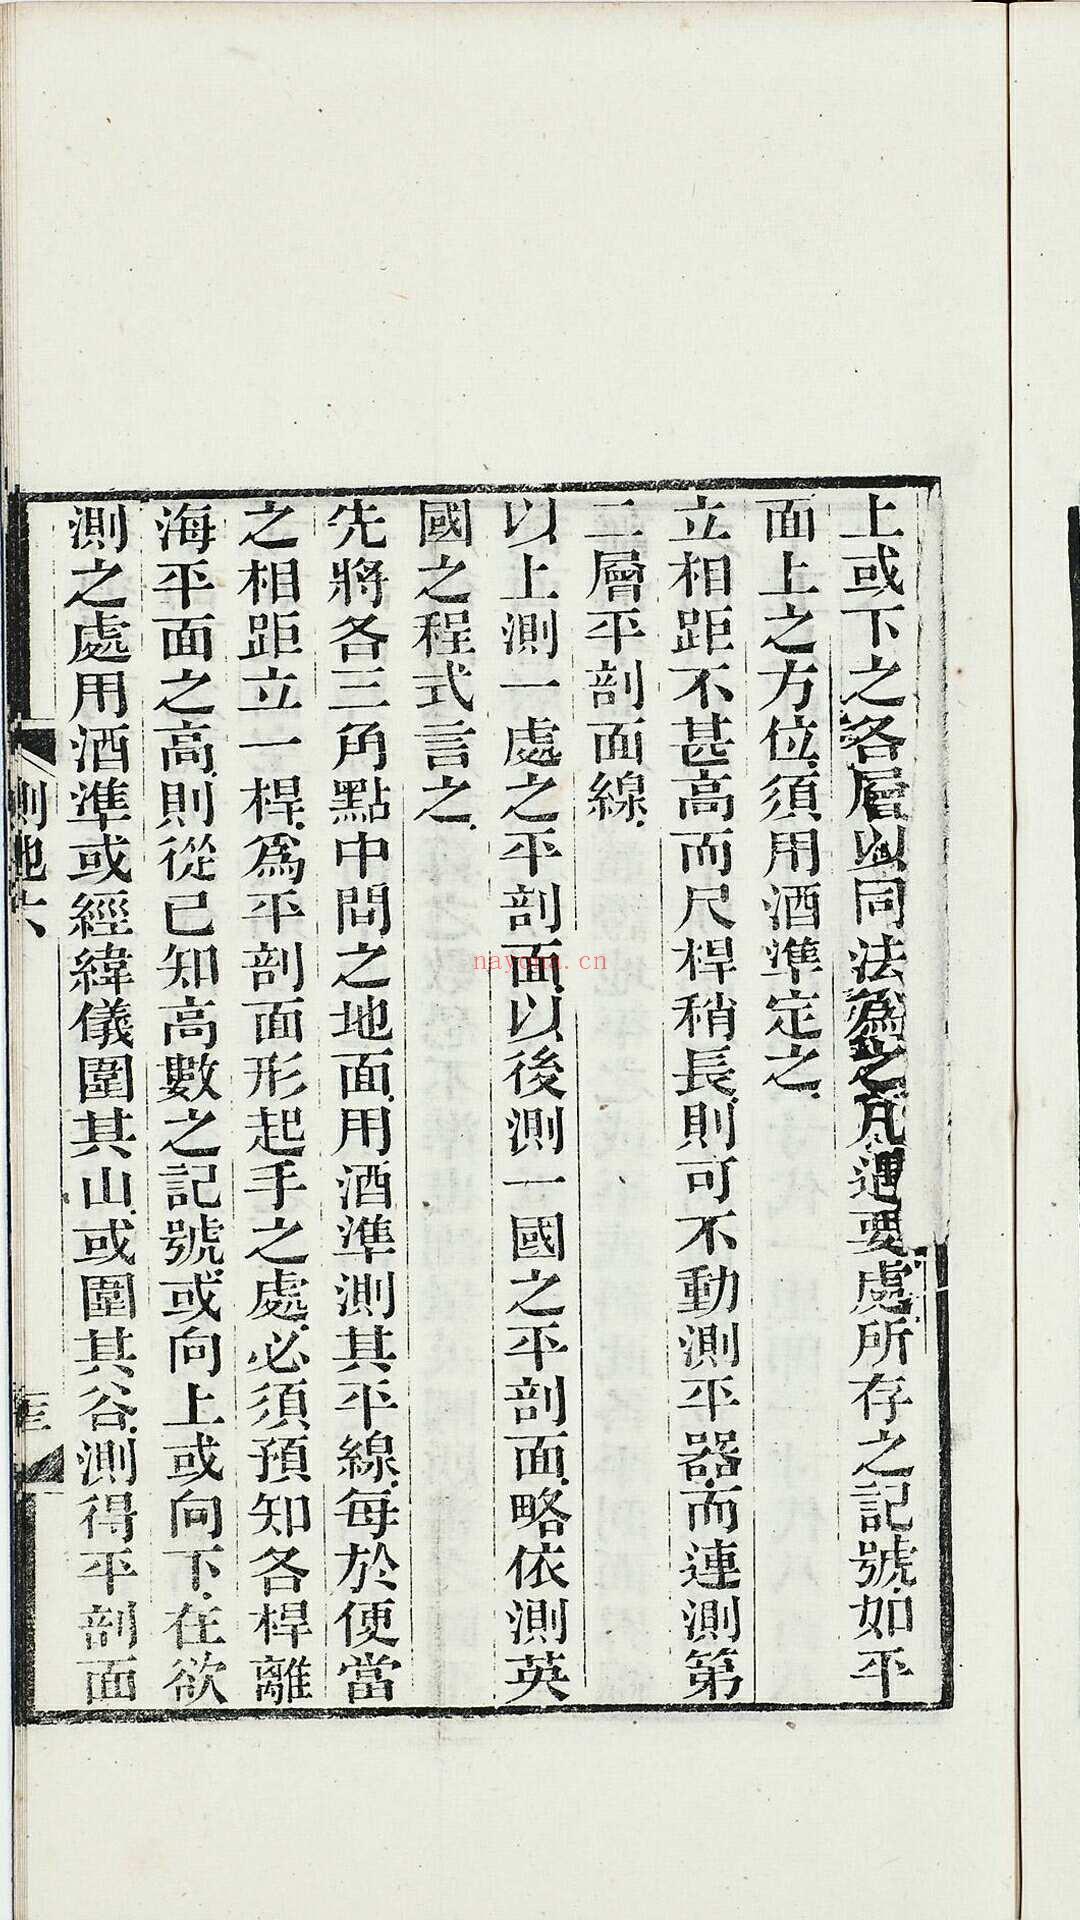 上或下之各層以同法為之凡遇要處所存之記號如平
面上之方位須用酒準定之
立相距不甚高而尺桿稍長則可不動測平器而連測第
二層平剖面線
以上測一處之平剖面以後測一國之平剖面略依測英
國之程式言之
先將各三角點中間之地面用酒準測其平線每於便當
之相距立一桿為平剖面形起手之處必須預知各桿離
海平面之高則從已知高數之記號或向上或向下在欲
測之處用酒準或經緯儀圍其山或圍其谷測得平剖面
測地六
nayona.cn